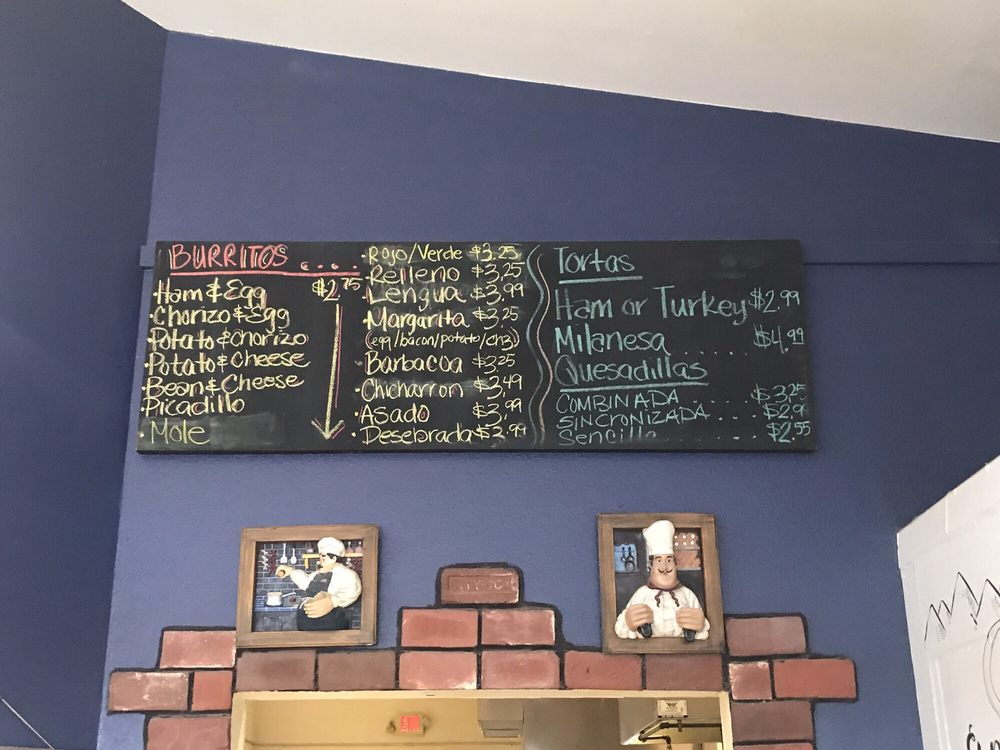 BURRITOS ....
· Ham & Egg $2.75
· Chorizo & Egg
· Potato & chorizo
· Potato & Cheese
· Bean & Cheese
· Picadillo
· Mole
· Rojo/Verde $3.25
· Relleno $3.25
· Lengua $3.99
· Margarita $3.25
(egg/bacon/potato/
· Barbacoa $3.25
· Chicharron $3.49
· Asado $3.99
· Desebrada $2.99
Tortas
Ham or Turkey $2.99
Milanesa .... $4.99
Quesadillas
COMBINADA .. $3.25
SINCRONIZADA ....
Sencilla .... $2.55
EXIT